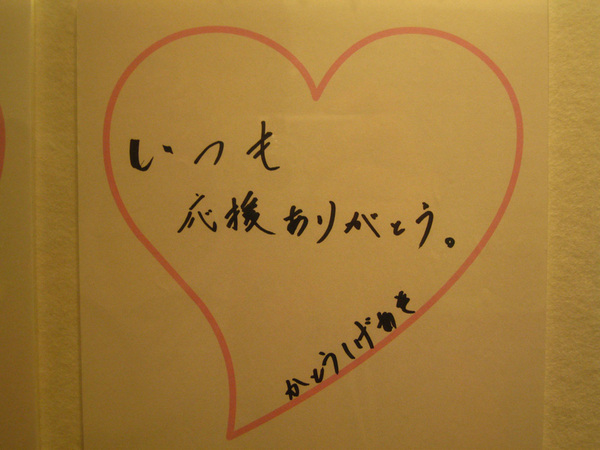 いつも
応援ありがとう。
かとうしげあき